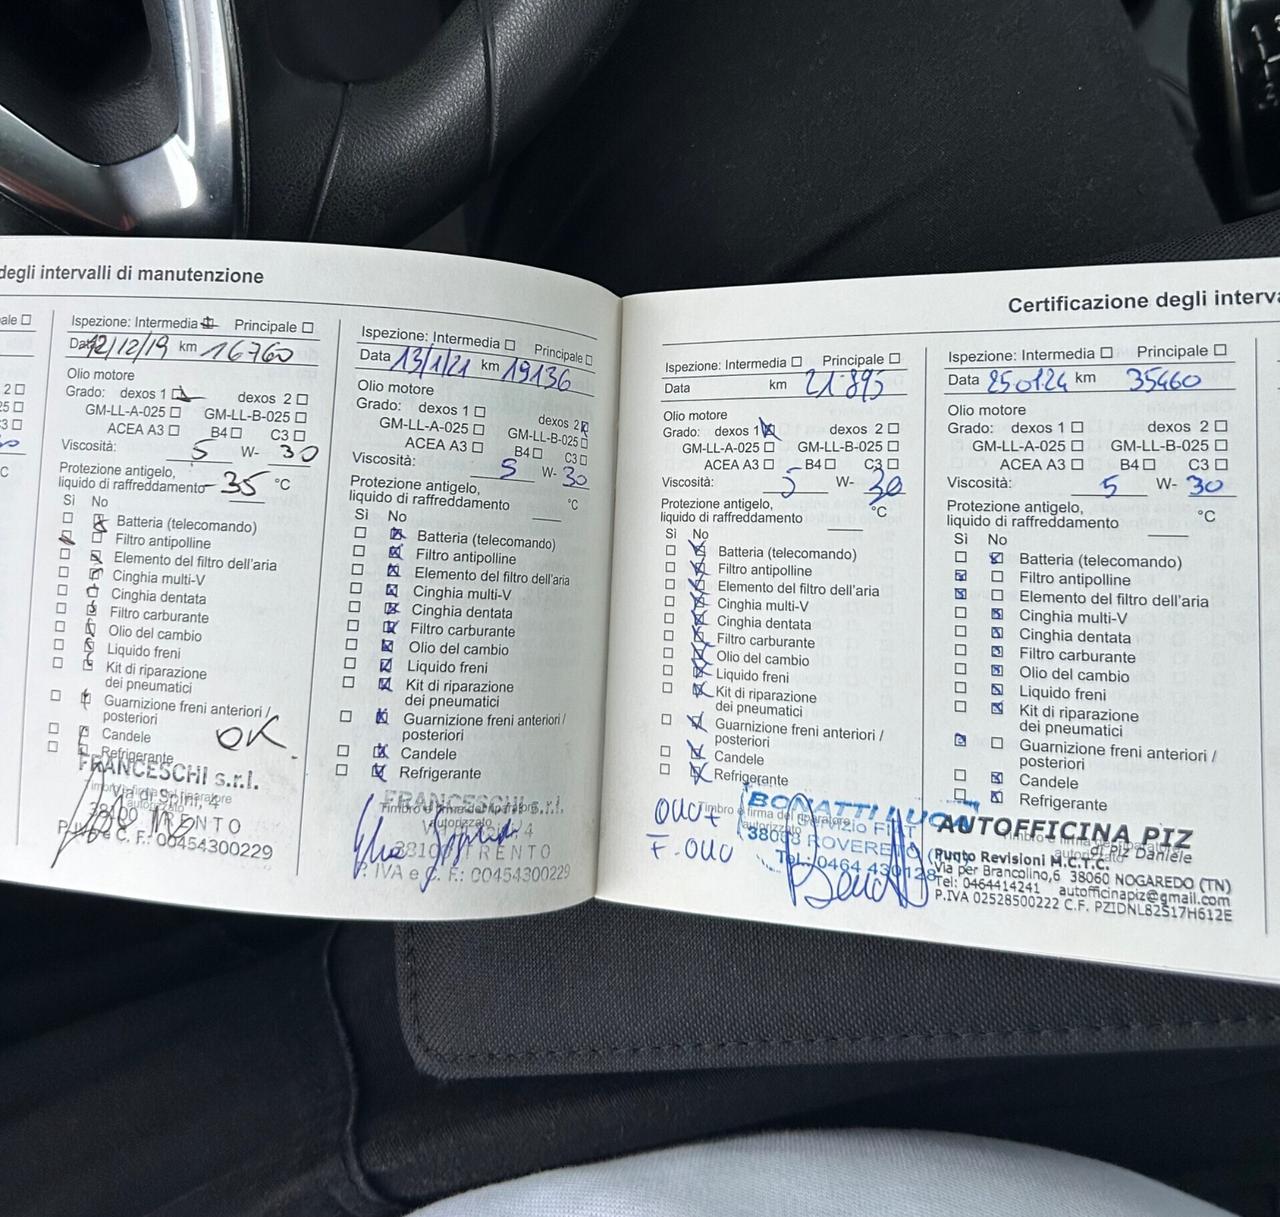 degli intervalli di manutenzione
ale
2
25
C3
°C
Ispezione: Intermedia Principale
Data 12/12/19 km 16760
Olio motore
Grado: dexos 1 dexos 2
GM-LL-A-025 GM-LL-B-025
ACEA A3 B4 C3
Viscosità: 5 W- 30
Protezione antigelo,
liquido di raffreddamento -35 °C
Sì No
Batteria (telecomando)
Filtro antipolline
Elemento del filtro dell'aria
Cinghia multi-V
Cinghia dentata
Filtro carburante
Olio del cambio
Liquido freni
Kit di riparazione
dei pneumatici
Guarnizione freni anteriori /
posteriori
Candele
OK
Refrigerante
FRANCESCHI s.r.l.
Via di Spini, 4
TRENTO
C. F.: 00454300229
Ispezione: Intermedia Principale
Data 13/1/21 km 19136
Olio motore
Grado: dexos 1 dexos 2
GM-LL-A-025 GM-LL-B-025
ACEA A3 B4 C3
Viscosità: 5 W- 30
Protezione antigelo,
liquido di raffreddamento °C
Sì No
Batteria (telecomando)
Filtro antipolline
Elemento del filtro dell'aria
Cinghia multi-V
Cinghia dentata
Filtro carburante
Olio del cambio
Liquido freni
Kit di riparazione
dei pneumatici
Guarnizione freni anteriori /
posteriori
Candele
Refrigerante
FRANCESCHI s.r.l.
Timbro e firma del riparatore
autorizzato
4
TRENTO
P. IVA e C. F.: 00454300229
Certificazione degli interva
Ispezione: Intermedia Principale
Data km 21895
Olio motore
Grado: dexos 1 dexos 2
GM-LL-A-025 GM-LL-B-025
ACEA A3 B4 C3
Viscosità: 5 W- 30
Protezione antigelo,
liquido di raffreddamento °C
Sì No
Batteria (telecomando)
Filtro antipolline
Elemento del filtro dell'aria
Cinghia multi-V
Cinghia dentata
Filtro carburante
Olio del cambio
Liquido freni
Kit di riparazione
dei pneumatici
Guarnizione freni anteriori /
posteriori
Candele
Refrigerante
BONATTI LUCA
Timbro e firma del riparatore
autorizzato
Servizio FIAT
38068 ROVERETO
Tel. 0464 430128
Ispezione: Intermedia Principale
Data 250124 km 35460
Olio motore
Grado: dexos 1 dexos 2
GM-LL-A-025 GM-LL-B-025
ACEA A3 B4 C3
Viscosità: 5 W- 30
Protezione antigelo,
liquido di raffreddamento °C
Sì No
Batteria (telecomando)
Filtro antipolline
Elemento del filtro dell'aria
Cinghia multi-V
Cinghia dentata
Filtro carburante
Olio del cambio
Liquido freni
Kit di riparazione
dei pneumatici
Guarnizione freni anteriori /
posteriori
Candele
Refrigerante
AUTOFFICINA PIZ
di Piz Daniele
Punto Revisioni M.C.T.C.
Via per Brancolino,6 38060 NOGAREDO (TN)
Tel: 0464414241 autofficinapiz@gmail.com
P.IVA 02528500222 C.F. PZIDNL82S17H612E